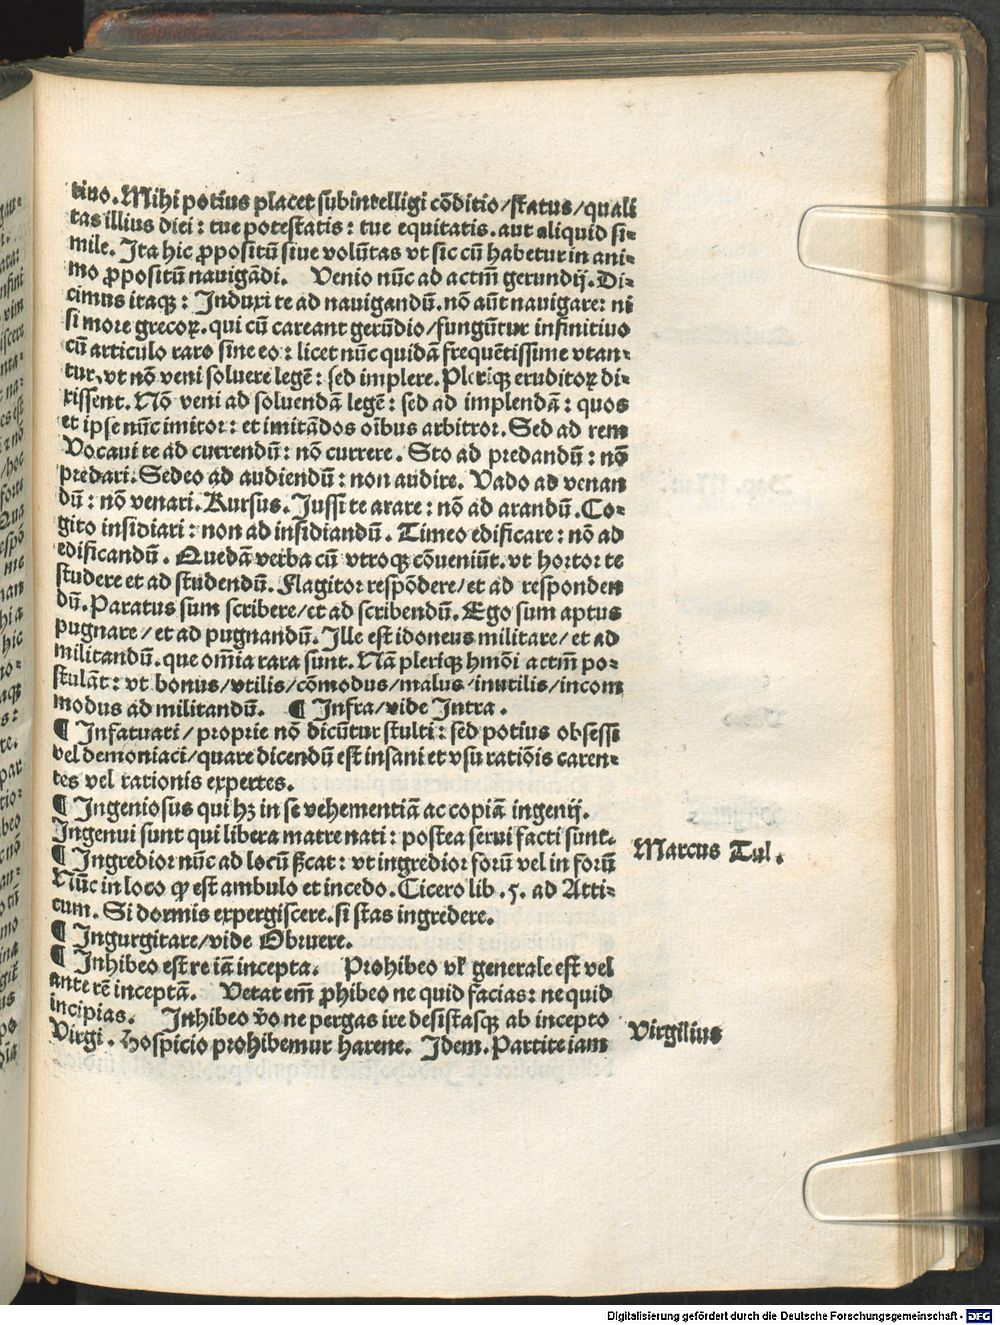 tiuo. Mihi potius placet subintelligi cõditio/status/quali
tas illius diei: tue potestatis: tue equitatis. aut aliquid si-
mile. Ita hic ꝓpositũ siue volũtas vt sic cũ habetur in ani-
mo ꝓpositũ nauigãdi. Venio nũc ad actm̃ gerundij. Di-
cimus itaqꝫ: Induxi te ad nauigandũ. nõ aũt nauigare: ni
si more grecoꝝ. qui cũ careant gerũdio/fungũtur infinitiuo
cũ articulo raro sine eo: licet nũc quidã frequẽtissime vtan-
tur, vt nõ veni soluere legẽ: sed implere. Pleriqꝫ eruditoꝝ di-
xissent. Nõ veni ad soluendã legẽ: sed ad implendã: quos
et ipse nũc imitor: et imitãdos oĩbus arbitror. Sed ad rem
Vocaui te ad currendũ: nõ currere. Sto ad predandũ: nõ
predari. Sedeo ad audiendũ: non audire. Vado ad venan
dũ: nõ venari. Rursus. Jussi te arare: nõ ad arandũ. Co-
gito insidiari: non ad insidiandũ. Timeo edificare: nõ ad
edificandũ. Quedã verba cũ vtroqꝫ cõueniũt. vt hortor te
studere et ad studendũ. Flagitor respõdere/et ad responden
dũ. Paratus sum scribere/et ad scribendũ. Ego sum aptus
pugnare/et ad pugnandũ. Ille est idoneus militare/et ad
militandũ. que om̃ia rara sunt. Nã pleriqꝫ hmõi actm̃ po-
stulãt: vt bonus/vtilis/cõmodus/malus/inutilis/incom
modus ad militandũ. ¶ Infra/vide Intra.
¶ Infatuati/proprie nõ dicũtur stulti: sed potius obsessi
vel demoniaci/quare dicendũ est insani et vsu ratiõis caren-
tes vel rationis expertes.
¶ Ingeniosus qui hꝫ in se vehementiã ac copiã ingenij.
Ingenui sunt qui libera matre nati: postea serui facti sunt.
¶ Ingredior nũc ad locũ vt ingredior forũ vel in forũ
Marcus Tul.
Nũc in loco est ambulo et incedo. Cicero lib .5. ad Atti-
cum. Si dormis expergiscere. si stas ingredere.
¶ Ingurgitare/vide Obruere.
¶ Inhibeo est re iã incepta. Prohibeo generale est vel
ante rẽ inceptã. Vetat em̃ ꝓhibeo ne quid facias: ne quid
incipias. Inhibeo v̊o ne pergas ire desistasqꝫ ab incepto
Virgilius
Virgi. Hospicio prohibemur harene. Idem. Partite iam
Digitalisierung gefördert durch die Deutsche Forschungsgemeinschaft - DFG